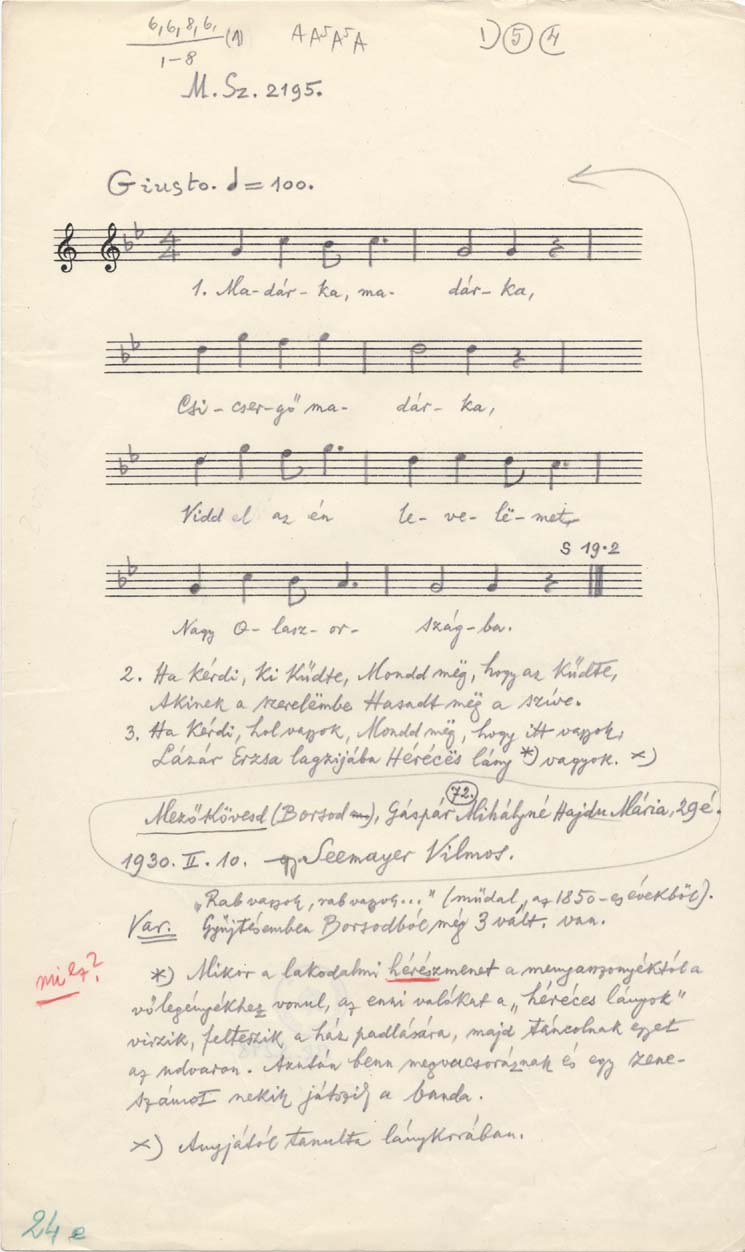 6,6,8,6, (1) A A⁵ A⁵ A 1) 5 4
1–8
M. Sz. 2195.
Giusto. 𝅗𝅥 = 100.
1. Ma-dár-ka, ma- dár-ka,
Csi-cser-gő ma- dár-ka,
Vidd el az én le-ve-lë-met
S 19·2
Nagy O-lasz-or- szág-ba.
2. Ha kérdi, ki küdte, Mondd mëg, hogy az küdte,
Akinek a szerelëmbe Hasadt mëg a szíve.
3. Ha kérdi, hol vagyok, Mondd mëg, hogy itt vagyok,
Lázár Erzsa lagzijába Hérécës lány *) vagyok. ×)
72.
Mezőkövesd (Borsod m), Gáspár Mihályné Hajdu Mária, 29 é.
1930. II. 10. gy Seemayer Vilmos.
„Rab vagyok, rab vagyok..." (műdal „az 1850-es évekből).
Var. Gyűjtésemben Borsodból még 3 vált. van.
mi ez?
*) Mikor a lakodalmi hérészmenet a menyasszonyéktól a
vőlegényékhez vonul, az enni valókat a „héréces lányok"
viszik, felteszik a ház padlására, majd táncolnak egyet
az udvaron. Azután benn megvacsoráznak és egy zene-
számot nekik játszik a banda.
×) Anyjától tanulta lánykorában.
24 e